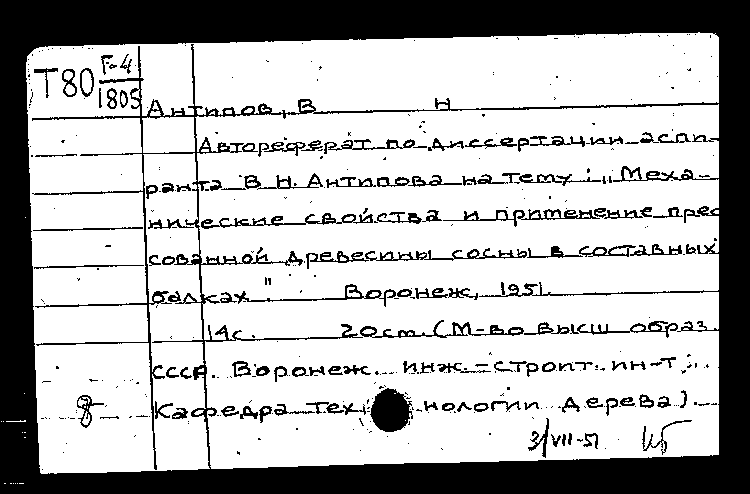 Т80 F-4
1805
Антипов, В Н
Автореферат по диссертации аспи-
ранта В Н. Антипова на тему: „Меха-
нические свойства и применение прес
сованной древесины сосны в составных
балках" Воронеж, 1951.
14с. 20см. (М-во высш образ.
СССР. Воронеж. инж.-строит. ин-т;.
8 Кафедра тех нологии дерева).
3/VII-51 КБ